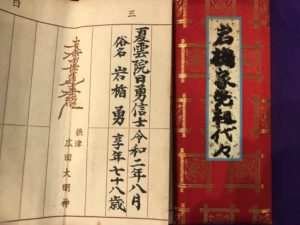 岩楯家先祖代々
三
夏雲院田勇信士 令和二年八月
俗名 岩楯 勇 享年七十八歳
摂津 広田大明神
日